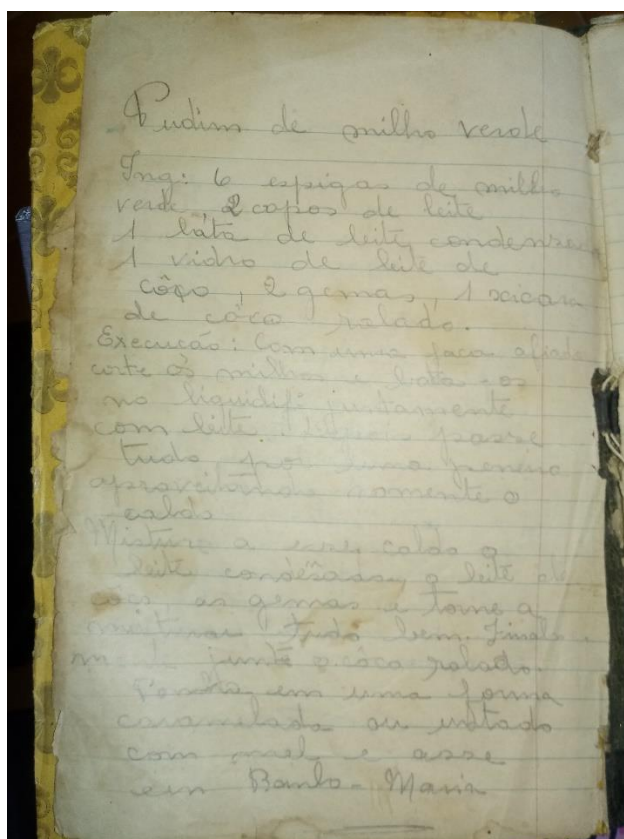 Pudim de milho verde
Ing: 6 espigas de milho
verde 2 copos de leite
1 láta de leite condensa
1 vidro de leite de
côco, 2 gemas, 1 xicara
de côco ralado.
Execução: Com uma faca afiada
corte os milhos e bata-os
no liquidifi juntamente
com leite. passe
tudo, por uma peneira
aproveitando somente o
caldo
Misture a esse caldo o
leite condensado, o leite de
côco, as gemas e torne a
misturar tudo bem. Final-
mente junte o côco ralado.
Ponha em uma forma
caramelada ou untado
com mel e asse
em Banho-Maria